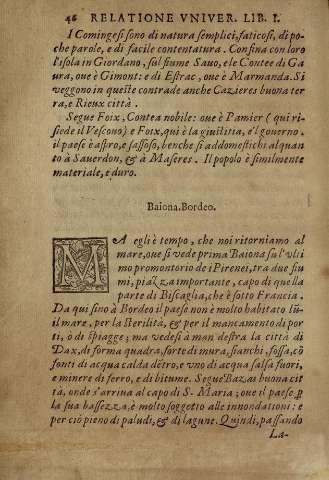 46 RELATIONE VNIVER. LIB. I.
I Comingesi sono di natura semplici, faticosi, di po-
che parole, e di facile contentatura. Confina con loro
l'isola in Giordano, sul fiume Sauo, e le Contee di Ga
ura, oue è Gimont: e di Estrac, oue è Marmanda. Si
veggono in queste contrade anche Cazieres buona ter
ra, e Rieux città.
Segue Foix, Contea nobile: oue è Pamier (qui ri-
siede il Vescouo) e Foix, qui è la giustitia, e'l gouerno.
il paese è aspro, e sassoso, benche si addomestichi alquan
to à Sauerdon, & à Maseres. Il popolo è similmente
materiale, e duro.
Baiona. Bordeo.
MA egli è tempo, che noi ritorniamo al
mare, oue si vede prima Baiona su l'vlti
mo promontorio de i Pirenei, tra due fiu
mi, piazza importante, capo di quella
parte di Biscaglia, che è sotto Francia.
Da qui sino à Bordeo il paese non è molto habitato lū-
go il mare, per la sterilità, & per il mancamento di por
ti, ò di spiagge; ma vedesi à man destra la città di
Dax, di forma quadra, forte di mura, fianchi, fossa, cō
fonti di acqua calda dētro, e vno di acqua salsa fuori,
e minere di ferro, e di bitume. Segue Bazas buona cit
tà, onde s'arriua al capo di S. Maria; oue il paese p
la sua bassezza, è molto soggetto alle innondationi: e
per ciò pieno di paludi, & di lagune. Quindi, passando
La-